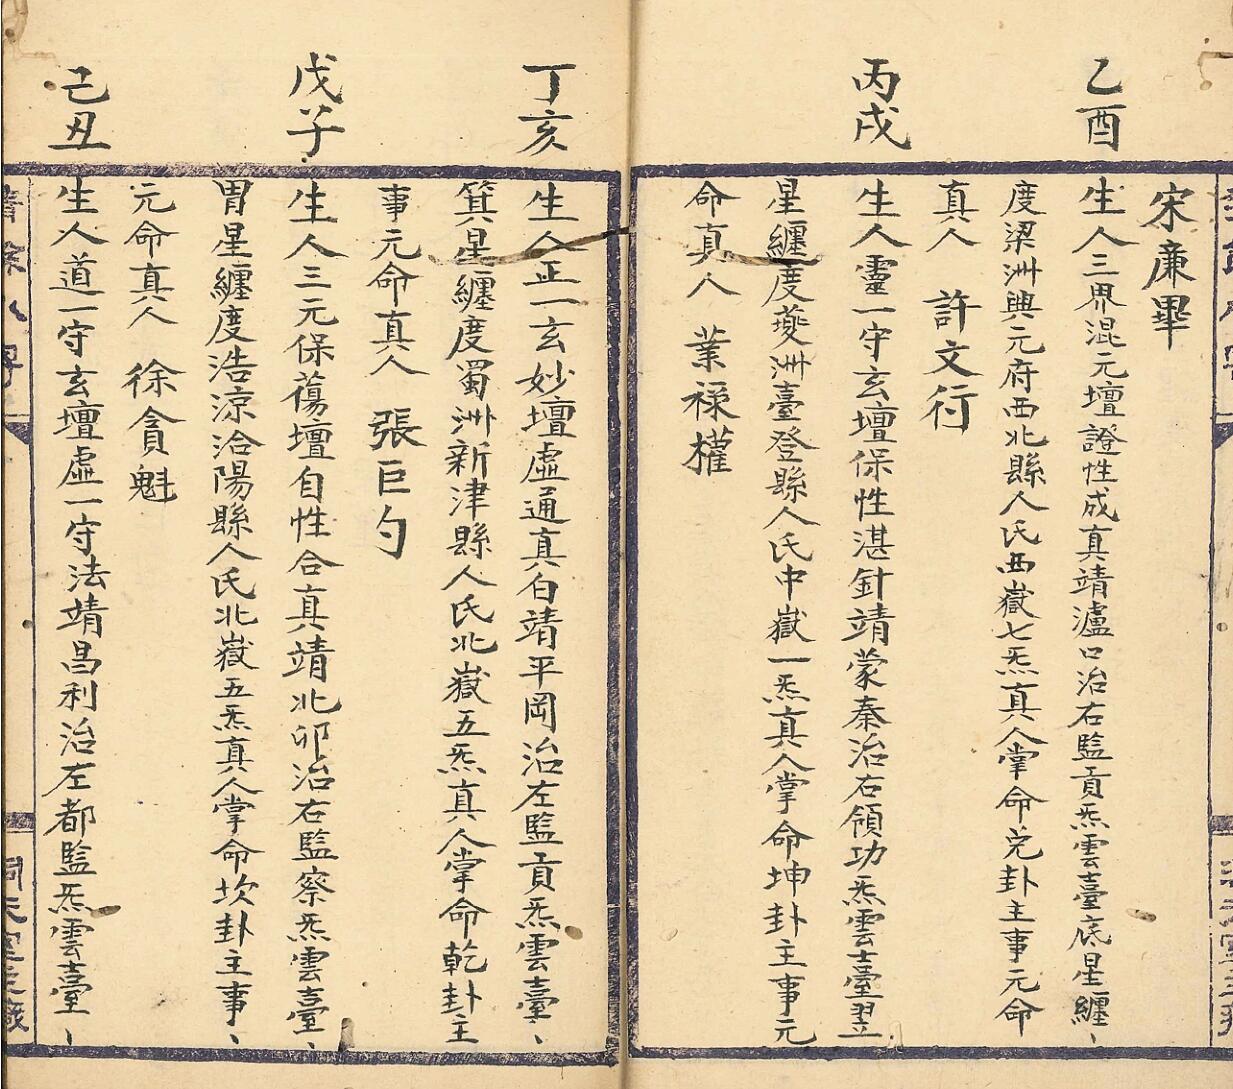 宋廉畢
乙酉
生人三界混元壇證性成真靖瀘口治右監貢炁雲臺底星纏、
度梁洲興元府西北縣人氏西嶽七炁真人掌命兌卦主事元命
真人 許文行
丙戌
生人靈一守玄壇保性湛針靖蒙秦治右領功炁雲臺翌
星纏度夔洲臺登縣人氏中嶽一炁真人掌命坤卦主事元
命真人 業祿權
丁亥
生人正一玄妙壇虛通真白靖平岡治左監貢炁雲臺、
箕星纏度蜀洲新津縣人氏北嶽五炁真人掌命乾卦主
事元命真人 張巨勺
戊子
生人三元保蕩壇自性合真靖北卯治右監察炁雲臺、
胃星纏度浩涼洽陽縣人氏北嶽五炁真人掌命坎卦主事、
元命真人 徐貪魁
己丑
生人道一守玄壇虛一守法靖昌利治左都監炁雲臺、